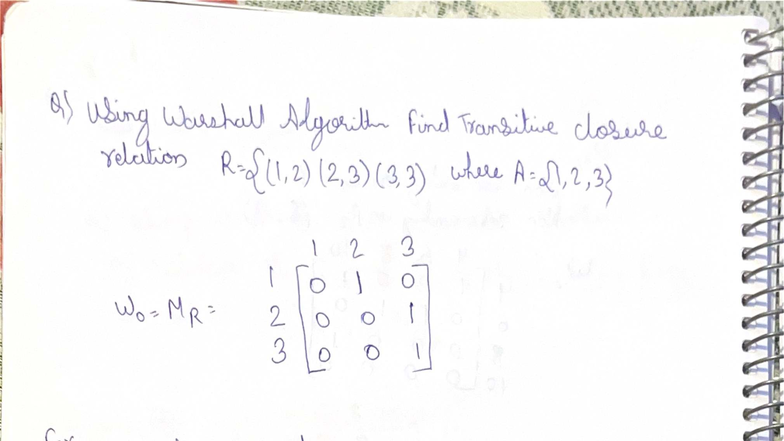 Q) Using Warshall Algorithm Find Transitive closure
relation R={(1,2)(2,3)(3,3) where A={1,2,3}
1 2 3
1 [0 1 0]
W0=MR= 2 [0 0 1]
3 [0 0 1]